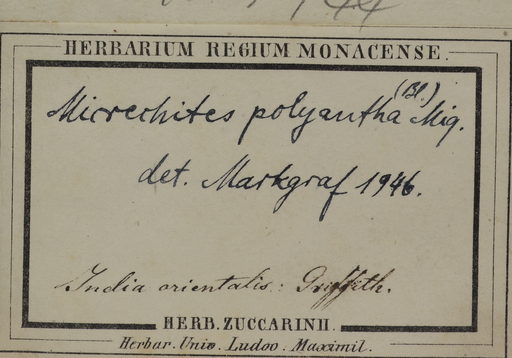 HERBARIUM REGIUM MONACENSE.
Micrechites polyantha (Bl.) Miq.
det. Markgraf 1946.
India orientalis: Griffith.
HERB. ZUCCARINII.
Herbar. Univ. Ludov. Maximil.